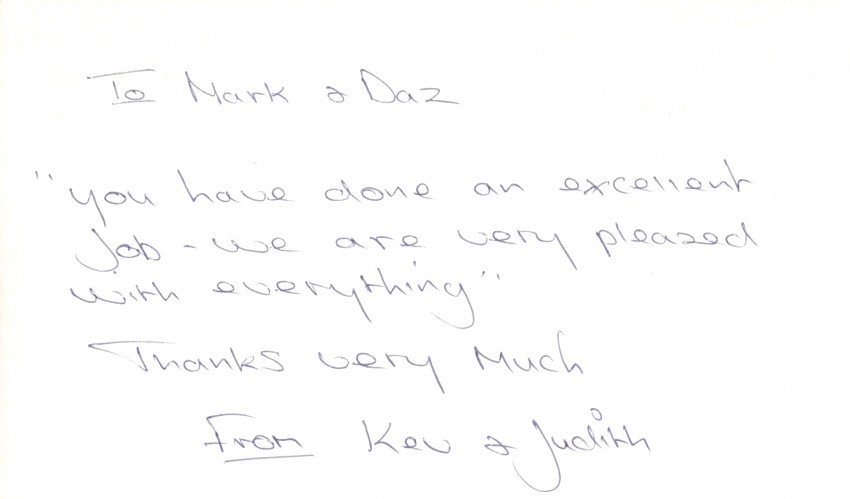 To Mark & Daz
"you have done an excellent
Job - we are very pleased
with everything"
Thanks very Much
From Kev & Judith